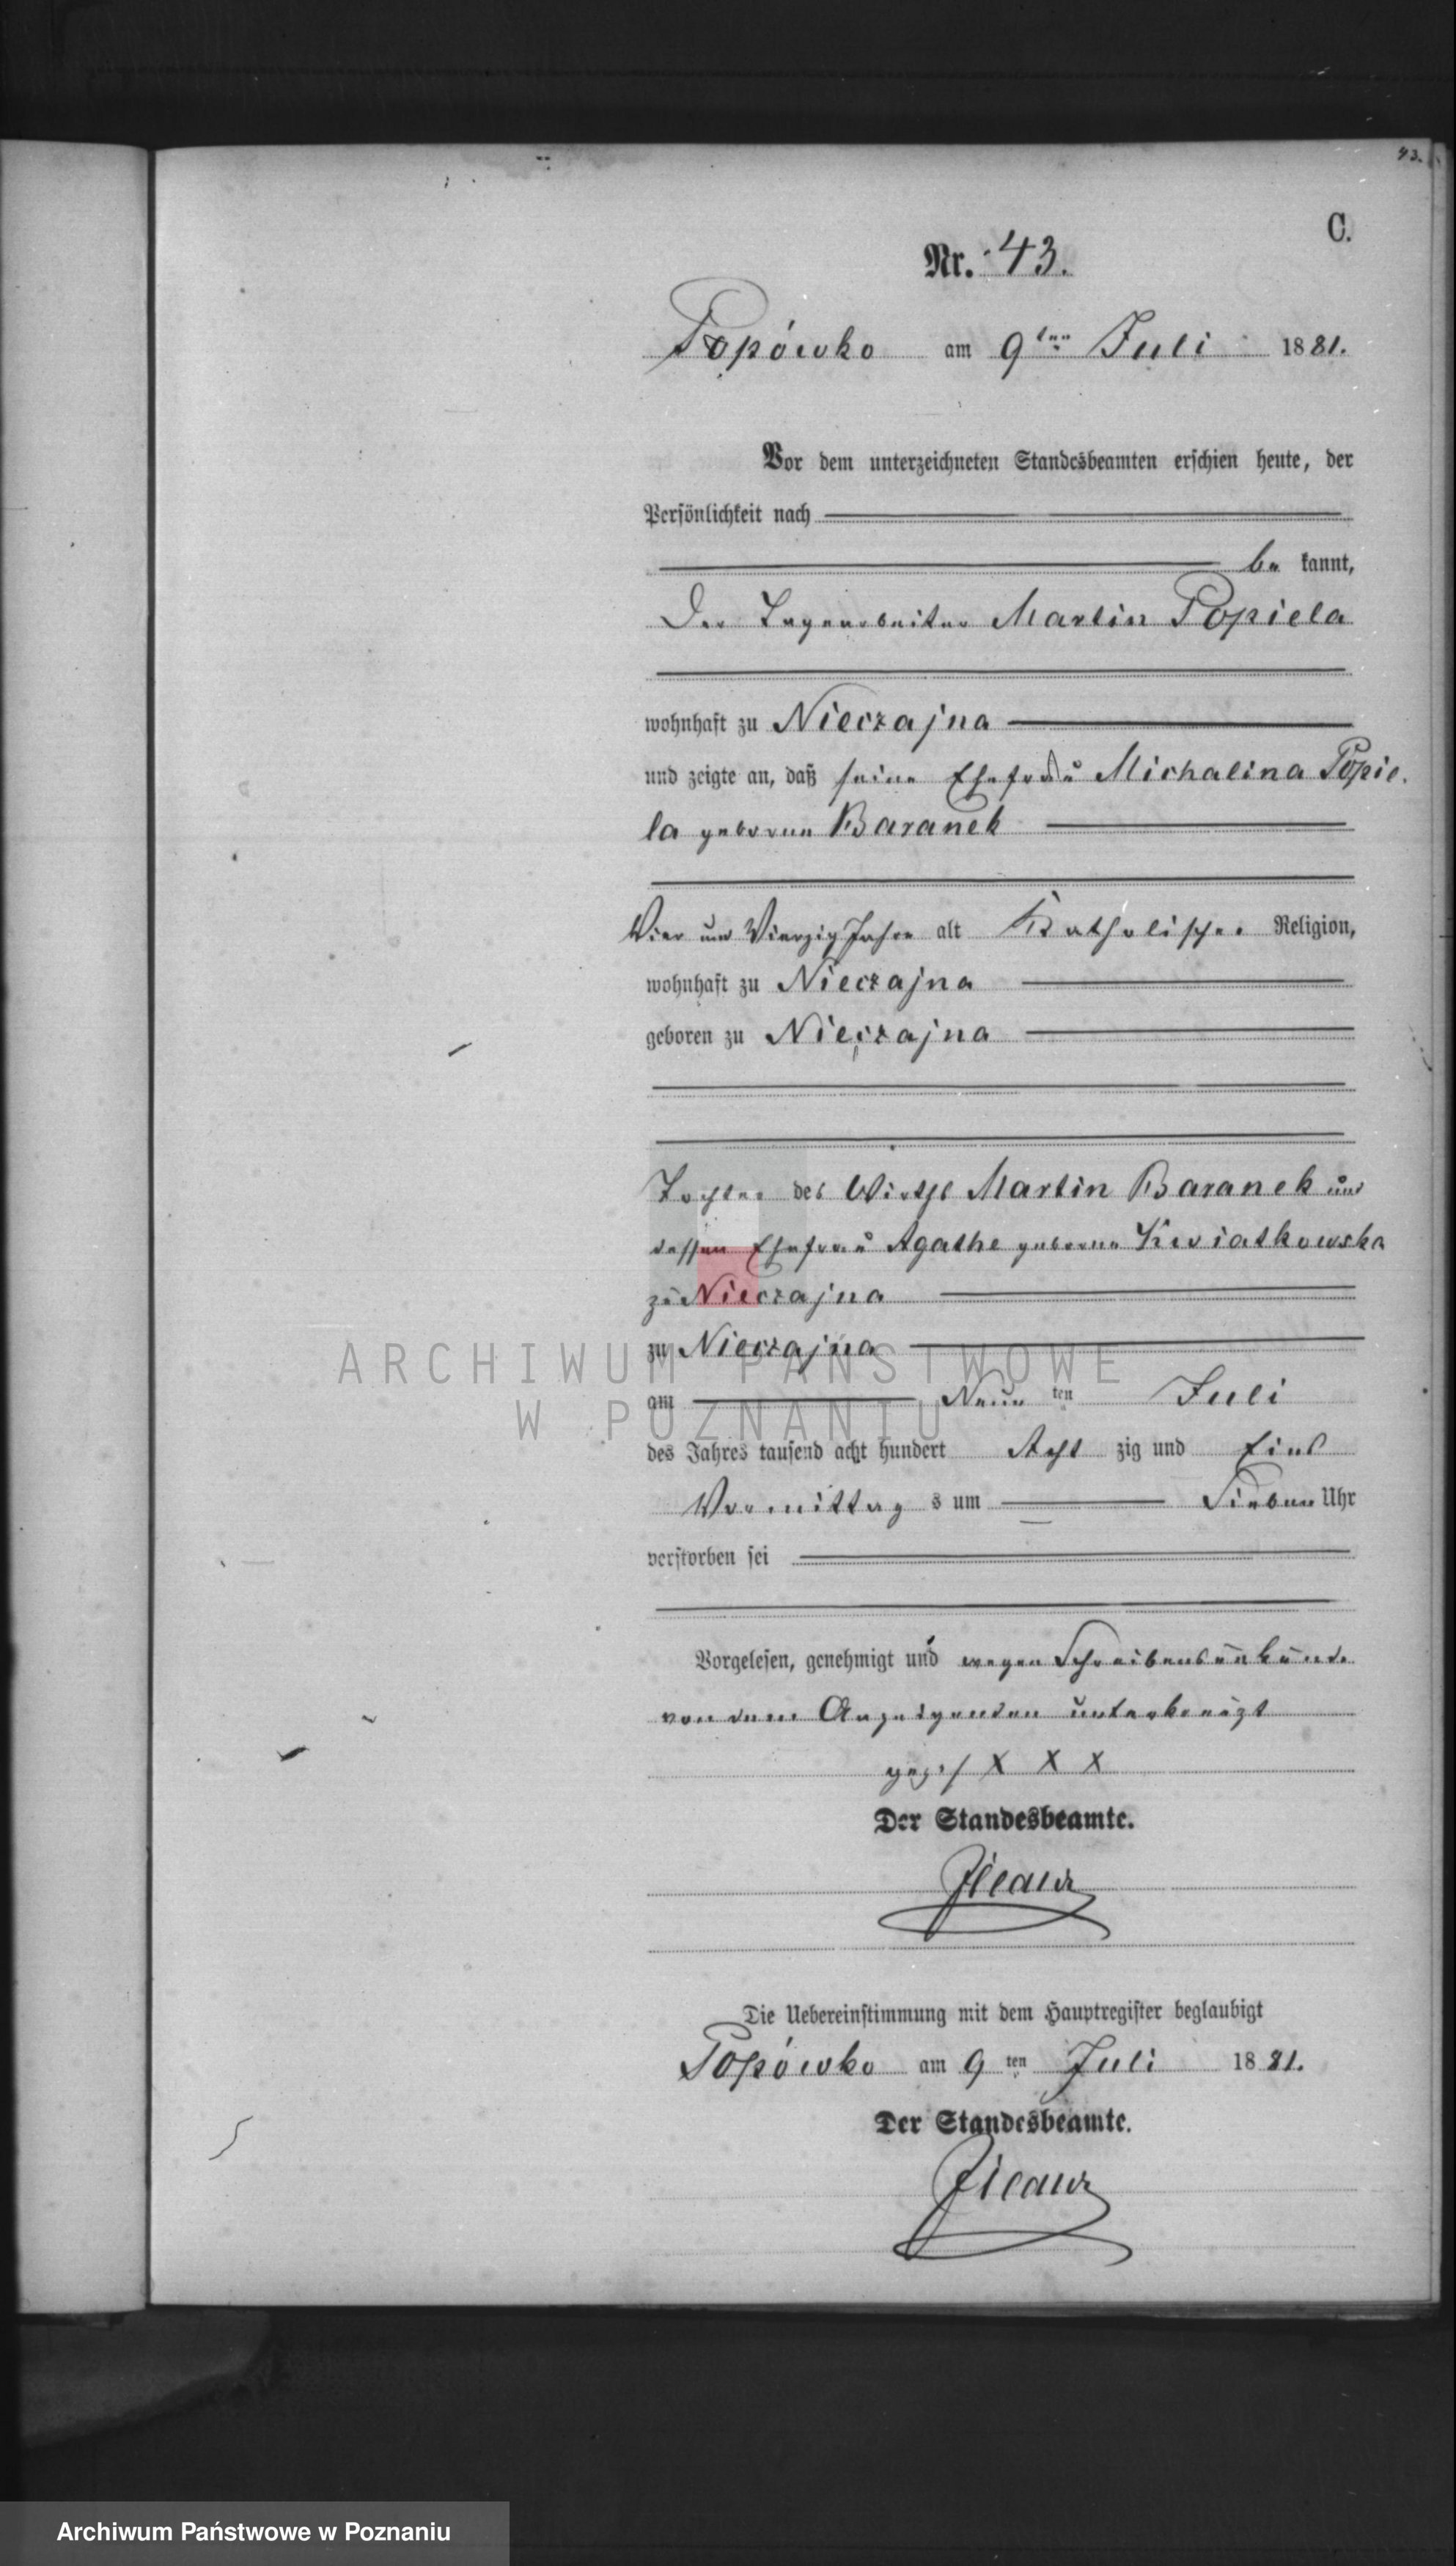 43.
C.
Nr. 43.
Popówko am 9ten Juli 1881.
Vor dem unterzeichneten Standesbeamten erschien heute, der
Persönlichkeit nach
be kannt,
Der Tagearbeiter Martin Popiela
wohnhaft zu Nieczajna
und zeigte an, daß seine Ehefrau Michalina Popie-
la geborene Baranek
Vier und Vierzig Jahre alt Katholischer Religion,
wohnhaft zu Nieczajna
geboren zu Nieczajna
Tochter des Wirths Martin Baranek und
dessen Ehefrau Agathe geborene Kwiatkowska
zu Nieczajna
zu Nieczajna
am Neun ten Juli
des Jahres tausend acht hundert Acht zig und Eins
Vormittag s um Sieben Uhr
verstorben sei
Vorgelesen, genehmigt und wegen Schreibensunkunde
von dem Anzeigenden unterkreuzt
gez. / X X X
Der Standesbeamte.
Die Uebereinstimmung mit dem Hauptregister beglaubigt
Popówko am 9 ten Juli 18 81.
Der Standesbeamte.
ARCHIWUM PAŃSTWOWE
W POZNANIU
Archiwum Państwowe w Poznaniu